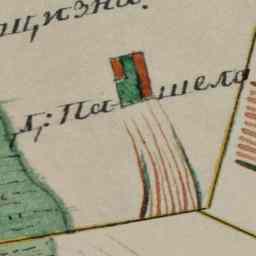 щизна.
д: Пашело